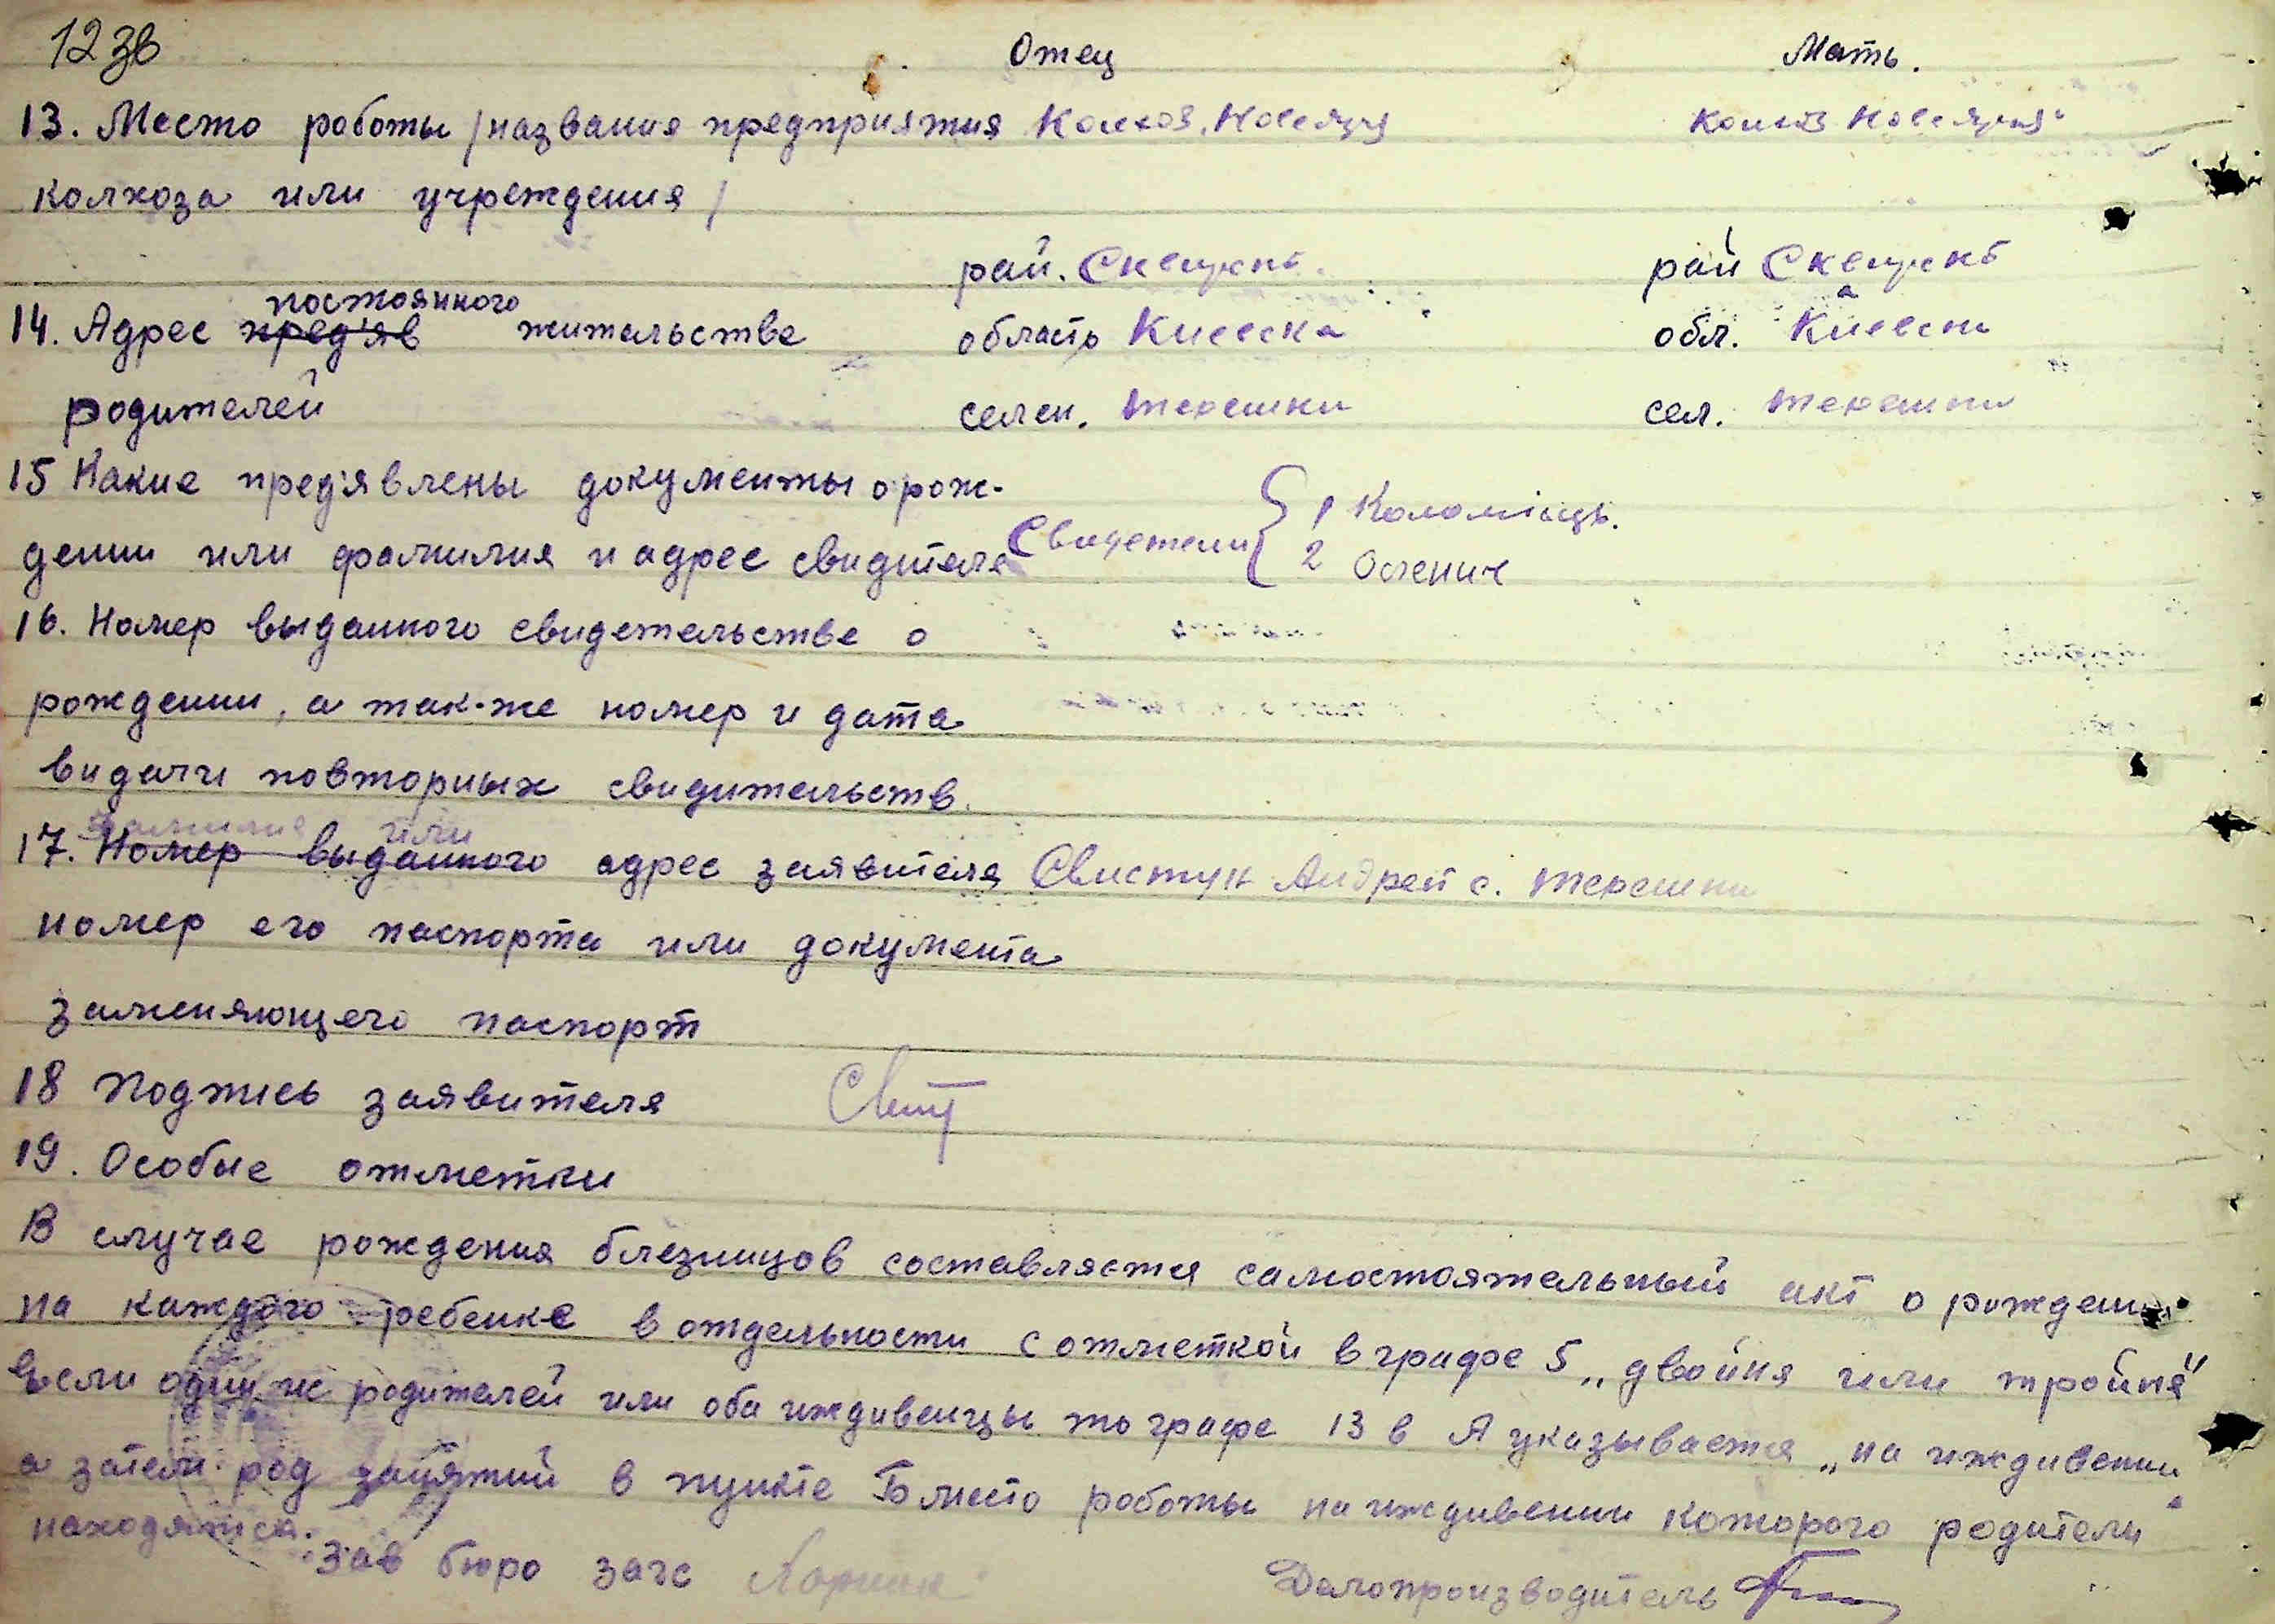 12 зв
Отец Мать.
13. Место роботы / названия предприятия Колхоз
колхоза или учреждения /
рай. рай
постоянного
14. Адрес пред'яв жительства область Киевска обл. Киевска
родителей селен. Терешки сел. Терешки
15 Какие пред'явлены документы о рож-
дении или фамилия и адрес свидителя Свидетели { 1 Коломієць.
2
16. Номер выданного свидетельства о
рождении, а так-же номер и дата
видачи повторных свидительств.
фамилия или
17. Номер выданного адрес заявителя Свистун Андрей с. Терешки
номер его паспорта или документа
заменяющего паспорт
18 Подпись заявителя
19. Особые отметки
В случае рождения близницов составляется самостоятельный акт о рождении
на каждого ребенка в отдельности с отметкой в графе 5 „двойня или тройня"
если один из родителей или оба иждивенцы то графе 13 в А указывается „на иждивении"
а затем род занятий в пункте Б место роботы на иждивении которого родители
находятся.
Зав бюро загс Делопроизводитель